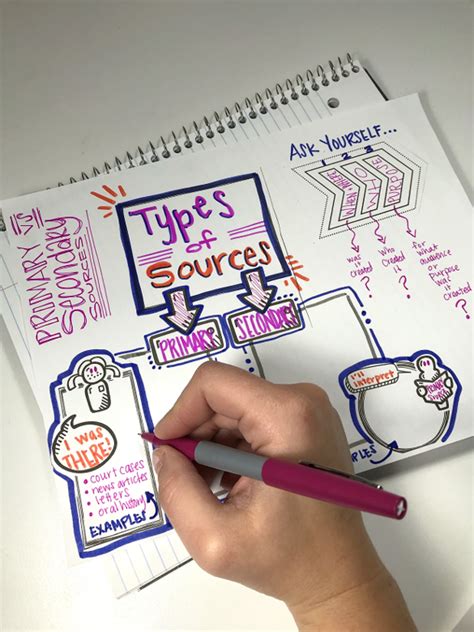 PRIMARY VS
Secondary
SOURCES
Types
of
Sources
ASK YOURSELF...
1 2 3
WHO
PURPOSE
was
it
created
?
who
created
it
?
for what
audience
or
purpose
was it
created
?
PRIMARY
SECONDARY
I was
THERE!
• court cases
• news articles
• letters
• oral history
EXAMPLES
i'll
interpret